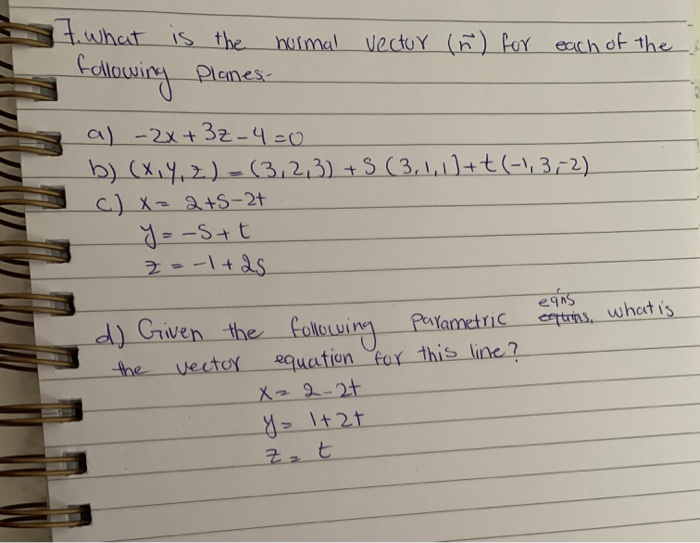 7. what is the normal vector (n⃗) for each of the
following planes:-
a) -2x+3z-4=0
b) (x,y,z) = (3,2,3) + s (3,1,1]+t(-1,3,-2)
c) x= 2+s-2t
y= -s+t
z = -1+2s
eqns
d) Given the following parametric what is
the vector equation for this line?
x= 2-2t
y= 1+2t
z= t